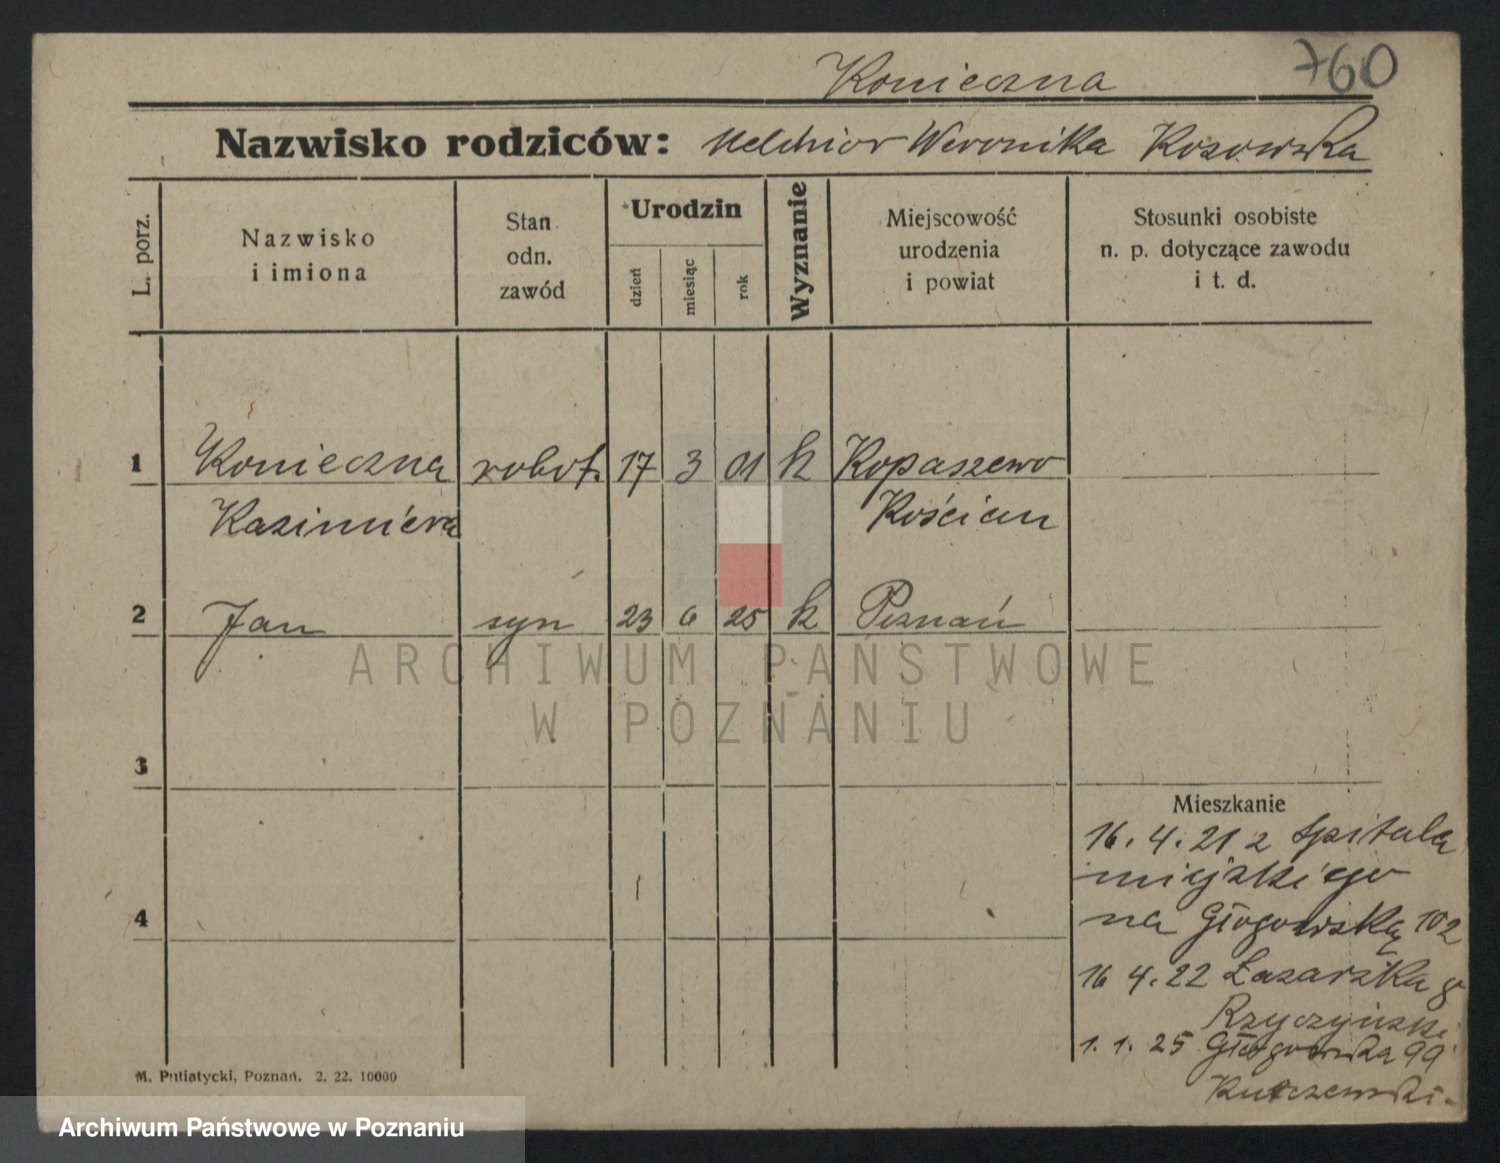 Konieczna 760
Nazwisko rodziców: Melchior Weronika Kosowska
L. porz.
Nazwisko
i imiona
Stan
odn.
zawód
Urodzin
dzień
miesiąc
rok
Wyznanie
Miejscowość
urodzenia
i powiat
Stosunki osobiste
n. p. dotyczące zawodu
i t. d.
1 Konieczna robot. 17 3 01 k Kopaszewo
Kazimiera Kościan
2 Jan syn 23 6 25 k Poznań
ARCHIWUM PAŃSTWOWE
W POZNANIU
3
Mieszkanie
16. 4. 21 z Szpitala
miejskiego
4 na Głogowską 102
16 4. 22 Łazarska 8
Rzyczyński
1. 1. 25 Głogowska 99
M. Putiatycki, Poznań. 2. 22. 10000
Archiwum Państwowe w Poznaniu